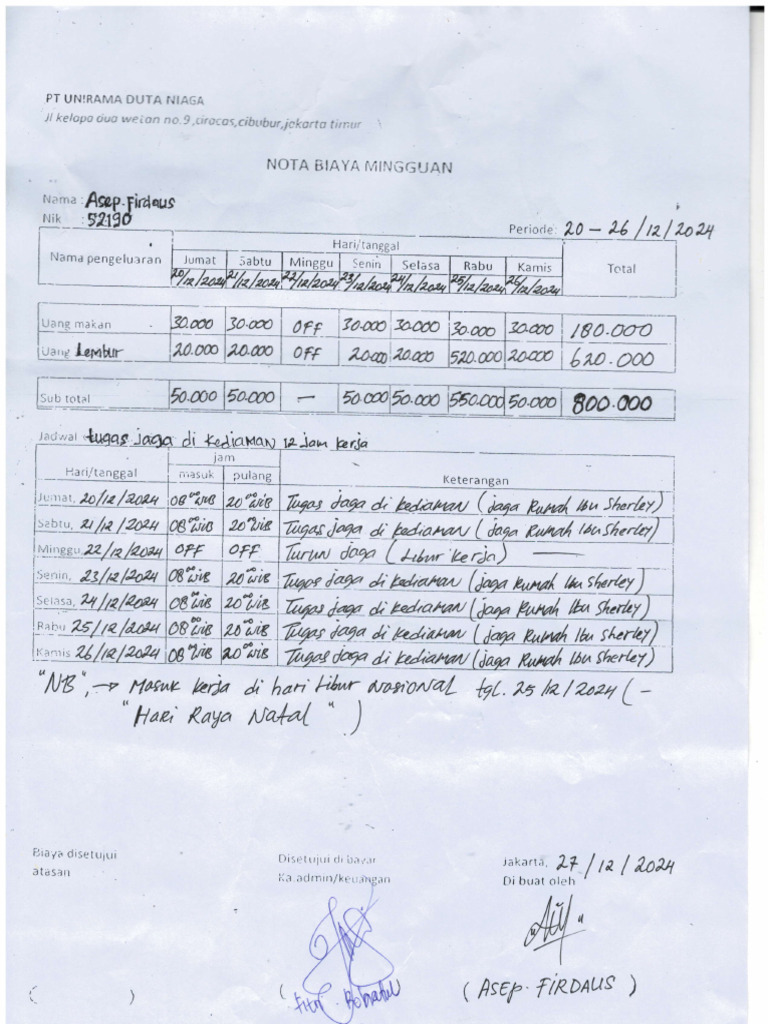 PT UNIRAMA DUTA NIAGA
Jl kelapa dua wetan no.9,ciracas,cibubur,jakarta timur
NOTA BIAYA MINGGUAN
Nama : Asep.Firdaus
Nik : 52190
Periode: 20 – 26/12/2024
Hari/tanggal
Nama pengeluaran Jumat Sabtu Minggu Senin Selasa Rabu Kamis Total
20/12/2024 21/12/2024 22/12/2024 23/12/2024 24/12/2024 25/12/2024 26/12/2024
Uang makan 30.000 30.000 OFF 30.000 30.000 30.000 30.000 180.000
Uang Lembur 20.000 20.000 OFF 20.000 20.000 520.000 20.000 620.000
Sub total 50.000 50.000 — 50.000 50.000 550.000 50.000 800.000
Jadwal : tugas jaga di kediaman 12 jam kerja
Hari/tanggal jam Keterangan
masuk pulang
Jumat, 20/12/2024 08⁰⁰ WIB 20⁰⁰ WIB Tugas jaga di kediaman (jaga Rumah Ibu Sherley)
Sabtu, 21/12/2024 08⁰⁰ WIB 20⁰⁰ WIB Tugas jaga di kediaman (jaga Rumah Ibu Sherley)
Minggu, 22/12/2024 OFF OFF Turun jaga (Libur kerja) —
Senin, 23/12/2024 08⁰⁰ WIB 20⁰⁰ WIB Tugas jaga di kediaman (jaga Rumah Ibu Sherley)
Selasa, 24/12/2024 08⁰⁰ WIB 20⁰⁰ WIB Tugas jaga di kediaman (jaga Rumah Ibu Sherley)
Rabu 25/12/2024 08⁰⁰ WIB 20⁰⁰ WIB Tugas jaga di kediaman (jaga Rumah Ibu Sherley)
Kamis 26/12/2024 08⁰⁰ WIB 20⁰⁰ WIB Tugas jaga di kediaman (jaga Rumah Ibu Sherley)
"NB", → Masuk kerja di hari Libur Nasional tgl. 25/12/2024 (-
"Hari Raya Natal".)
Biaya disetujui
atasan
Disetujui di bayar
Ka.admin/keuangan
Jakarta, 27/12/2024
Di buat oleh
( )
(ASEP. FIRDAUS)